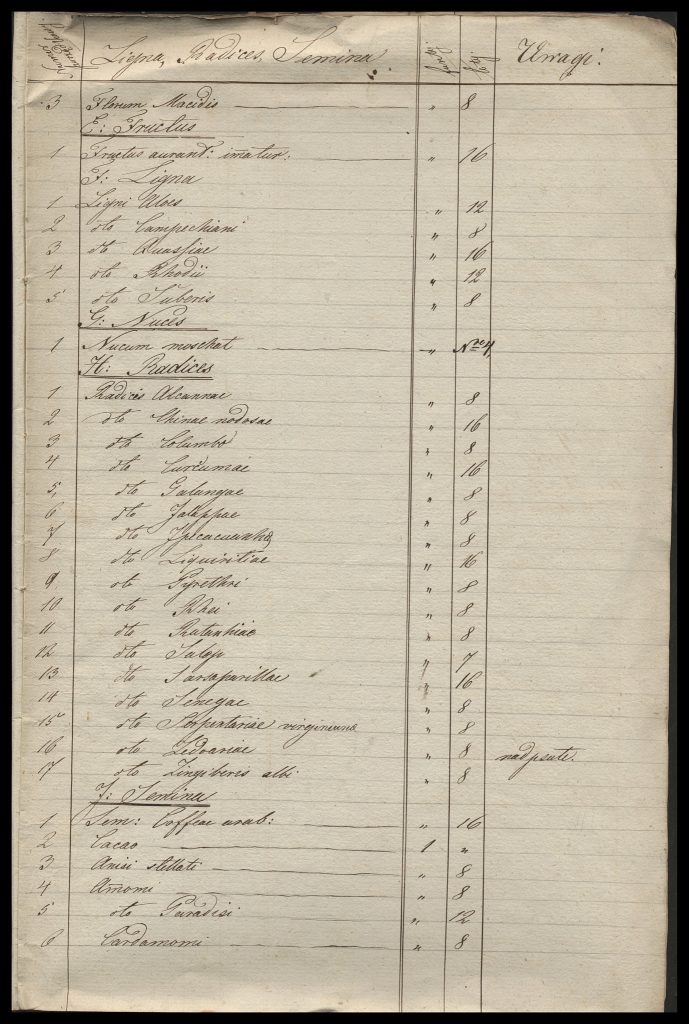 Numer
Ligna, Radices, Semina. Uwagi.
3 Florum Macidis — " 8
E: Fructus
1 Fructus aurant: imatur: — " 16
F: Ligna
1 Ligni Aloes " 12
2 dto Campechiani " 8
3 dto Quassiae " 16
4 dto Rhodii " 12
5 dto Suberis " 8
G: Nuces
1 Nucum moschat — " Nro 4,
H: Radices
1 Radices Alcannae " 8
2 dto Chinae nodosae " 16
3 dto Columbo " 8
4 dto Curcumae " 16
5, dto Galangae " 8
6 dto Jalappae " 8
7 dto Ipecacuanhae " 8
8 dto Liquiritiae " 16
9 dto Pyrethri " 8
10 dto Rhei " 8
11 dto Ratanhiae " 8
12 dto Salep " 7
13 dto Sarsaparillae " 16
14 dto Senegae " 8
15 dto Serpentariae virginianae " 8
16 dto Zedoariae " 8 nadpsute.
17 dto Zingiberis albi " 8
J: Semina
1 Sem: Coffeae arab: — " 16
2 Cacao — 1 "
3 Anisi stellati — " 8
4 Amomi — " 8
5 dto Paradisi " 12
6 Cardamomi — " 8